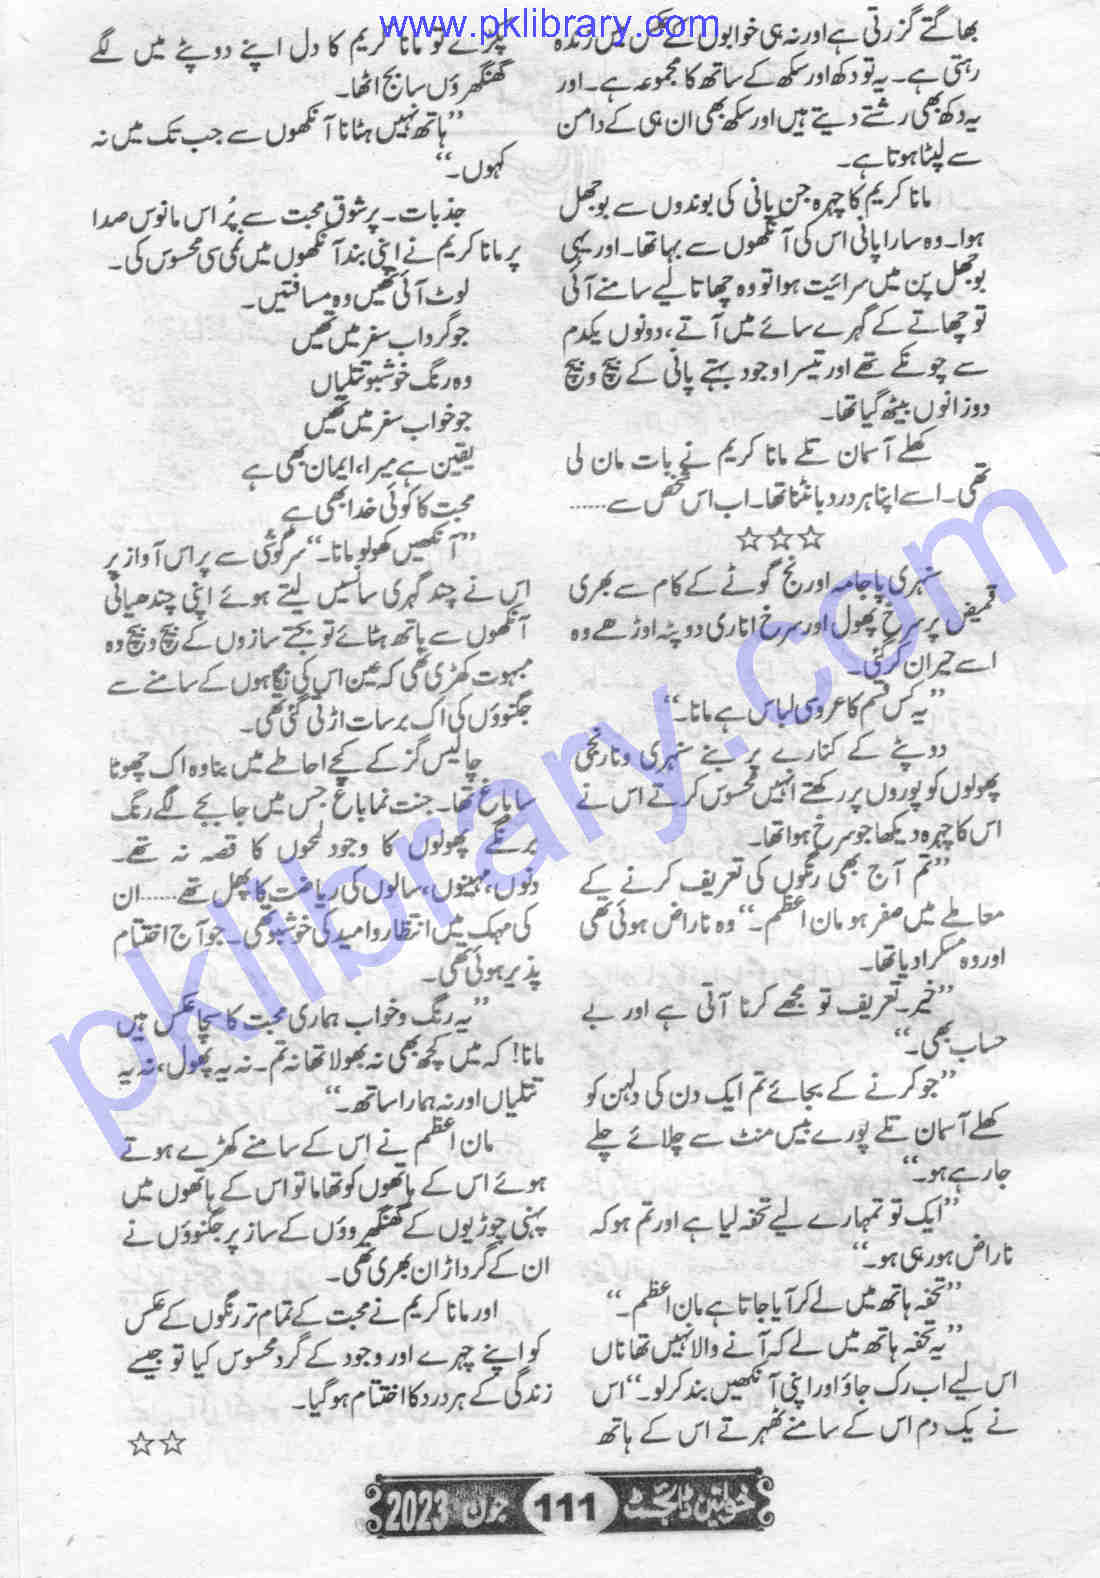 www.pklibrary.com
بھاگتے گزرتی ہے اور نہ ہی خوابوں کے عکس میں زندہ
رہتی ہے۔ یہ تو دکھ اور سکھ کے ساتھ کا مجموعہ ہے۔ اور
یہ دکھ بھی رشتے دیتے ہیں اور سکھ بھی ان ہی کے دامن
سے لپٹا ہوتا ہے۔
مانا کریم کا چہرہ جن پانی کی بوندوں سے بوجھل
ہوا۔ وہ سارا پانی اس کی آنکھوں سے بہا تھا۔ اور یہی
بوجھل پن میں سرائیت ہوا تو وہ چھاتا لیے سامنے آئی
تو چھاتے کے گہرے سائے میں آتے، دونوں یکدم
سے چونکے تھے اور تیسرا وجود بہتے پانی کے بیچ و بیچ
دوزانوں بیٹھ گیا تھا۔
کھلے آسمان تلے مانا کریم نے بات مان لی
تھی۔ اسے اپنا ہر درد بانٹنا تھا۔ اب اس شخص سے......
☆☆☆
سنہری پاجامہ اور نج گوٹے کے کام سے بھری
قمیض پر سرخ پھول اور سرخ اناری دوپٹہ اوڑھے وہ
اسے حیران کر گئی۔
”یہ کس قسم کا عروسی لباس ہے مانا۔“
دوپٹے کے کنارے پر بنے سنہری و نارنجی
پھولوں کو پوروں پر رکھتے انہیں محسوس کرتے اس نے
اس کا چہرہ دیکھا جو سرخ ہوا تھا۔
”تم آج بھی رنگوں کی تعریف کرنے کے
معاملے میں صفر ہو مان اعظم۔“ وہ ناراض ہوئی تھی
اور وہ مسکرا دیا تھا۔
”خیر۔ تعریف تو مجھے کرنا آتی ہے اور بے
حساب بھی۔“
”جو کرنے کے بجائے تم ایک دن کی دلہن کو
کھلے آسمان تلے پورے بیس منٹ سے چلائے چلے
جا رہے ہو۔“
”ایک تو تمہارے لیے تحفہ لیا ہے اور تم ہو کہ
ناراض ہو رہی ہو۔“
”تحفہ ہاتھ میں لے کر آیا جاتا ہے مان اعظم۔“
”یہ تحفہ ہاتھ میں لے کہ آنے والا نہیں تھا ناں
اس لیے اب رک جاؤ اور اپنی آنکھیں بند کر لو۔“ اس
نے یک دم اس کے سامنے ٹھہرتے اس کے ہاتھ
پکڑے تو مانا کریم کا دل اپنے دوپٹے میں لگے
گھنگھروؤں سا بج اٹھا۔
”ہاتھ نہیں ہٹانا آنکھوں سے جب تک میں نہ
کہوں۔“
جذبات۔ پر شوق محبت سے پُر اس مانوس صدا
پر مانا کریم نے اپنی بند آنکھوں میں نمی سی محسوس کی۔
لوٹ آئی تھیں وہ مسافتیں۔
جو گرداب سفر میں تھیں
وہ رنگ خوشبو تتلیاں
جو خواب سفر میں تھیں
یقین ہے میرا، ایمان بھی ہے
محبت کا کوئی خدا بھی ہے
”آنکھیں کھولو مانا۔“ سرگوشی سے پر اس آواز پر
اس نے چند گہری سانسیں لیتے ہوئے اپنی چندھیائی
آنکھوں سے ہاتھ ہٹائے تو بجتے سازوں کے بیچ و بیچ وہ
مبہوت کھڑی تھی کہ عین اس کی نگاہوں کے سامنے سے
جگنوؤں کی اک برسات اڑتی گئی تھی۔
چالیس گز کے کچے احاطے میں بنا وہ اک چھوٹا
سا باغ تھا۔ جنت نما باغ جس میں جا بجے لگے رنگ
برنگے پھولوں کا وجود لمحوں کا قصہ نہ تھے۔
دنوں، مہینوں، سالوں کی ریاضت کا پھل تھے...... ان
کی مہک میں انتظار و امید کی خوشبو تھی۔ جو آج اختتام
پذیر ہوئی تھی۔
”یہ رنگ و خواب ہماری محبت کا سچا عکس ہیں
مانا! کہ میں کچھ بھی نہ بھولا تھا نہ تم۔ نہ یہ پھول، نہ یہ
تتلیاں اور نہ ہمارا ساتھ۔“
مان اعظم نے اس کے سامنے کھڑے ہوتے
ہوئے اس کے ہاتھوں کو تھاما تو اس کے ہاتھوں میں
پہنی چوڑیوں کے گھنگھروؤں کے ساز پر جگنوؤں نے
ان کے گرد اڑان بھری تھی۔
اور مانا کریم نے محبت کے تمام تر رنگوں کے عکس
کو اپنے چہرے اور وجود کے گرد محسوس کیا تو جیسے
زندگی کے ہر درد کا اختتام ہو گیا۔
☆☆
خواتین ڈائجسٹ 111 جون 2023
pklibrary.com